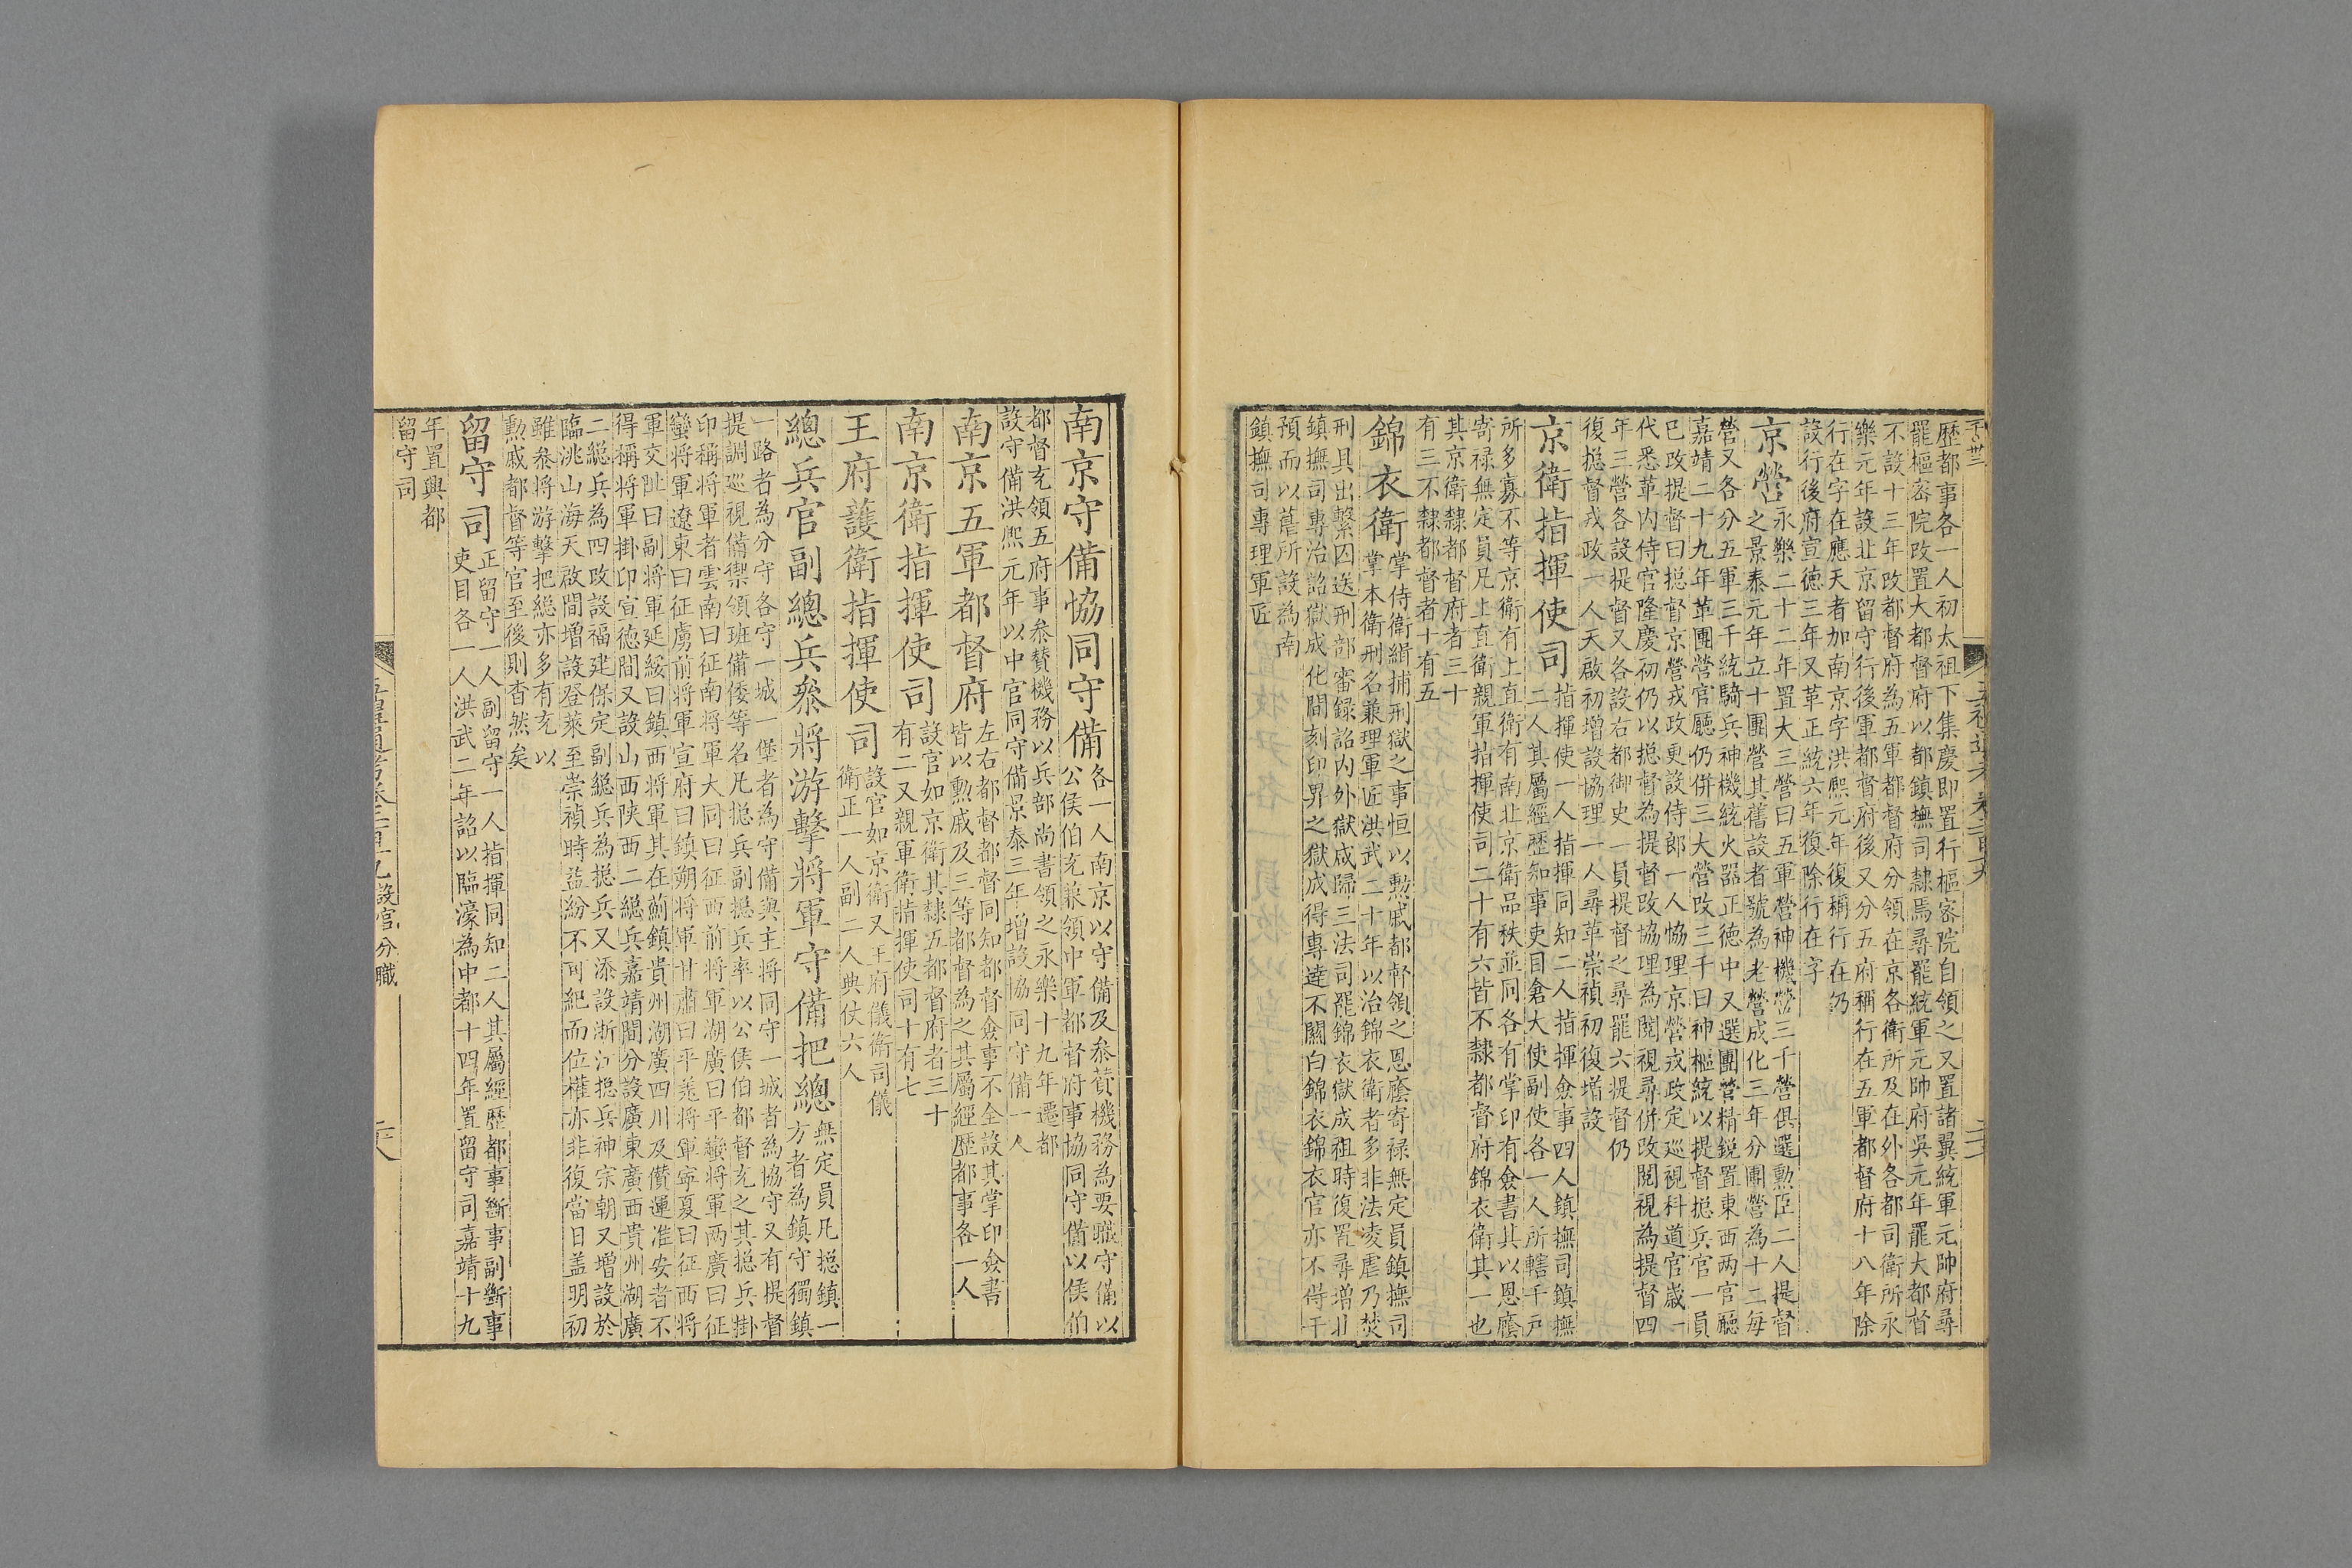 歷都事各一人初太祖下集慶即置行樞密院自領之又置諸翼統軍元帥府尋
罷樞密院改置大都督府以都鎮撫司隸焉尋罷統軍元帥府吳元年罷大都督
不設十三年改都督府為五軍都督府分領在京各衛所及在外各都司衛所永
樂元年設北京留守行後軍都督府後又分五府稱行在五軍都督府十八年除
行在字在應天者加南京字洪熙元年復稱行在仍
設行後府宣德三年又革正統六年復除行在字
京營
永樂二十二年置大三營曰五軍營神機營三千營俱選勲臣二人提督
之景泰元年立十團營其舊設者號為老營成化三年分團營為十二每
營又各分五軍三千統騎兵神機統火器正德中又選團營精銳置東西两官廳
嘉靖二十九年革團營官廳仍併三大營改三千曰神樞統以提督揔兵官一員
已改提督曰揔督京營戎政更設侍郎一人恊理京營戎政定巡視科道官歲一
代悉革內侍官隆慶初仍以揔督為提督改協理為閱視尋併改閱視為提督四
年三營各設提督又各設右都御史一員提督之尋罷六提督仍
復揔督戎政一人天啟初增設協理一人尋革崇禎初復增設
京衛指揮使司
指揮使一人指揮同知二人指揮僉事四人鎮撫司鎮撫
二人其屬經歷知事吏目倉大使副使各一人所轄千戶
所多寡不等京衛有上直衛有南北京衛品秩並同各有掌印有僉書其以恩廕
寄禄無定員凡上直衛親軍指揮使司二十有六皆不隸都督府錦衣衛其一也
其京衛隸都督府者三十
有三不隸都督者十有五
錦衣衛
掌侍衛緝捕刑獄之事恒以勲戚都督領之恩廕寄禄無定員鎮撫司
掌本衛刑名兼理軍匠洪武二十年以治錦衣衛者多非法凌虐乃焚
刑具出繫囚送刑部審録詔內外獄咸歸三法司罷錦衣獄成祖時復置尋增北
鎮撫司專治詔獄成化間刻印畀之獄成得專達不關白錦衣錦衣官亦不得干
預而以舊所設為南
鎮撫司專理軍匠
南京守備協同守備
各一人南京以守備及叅賛機務為要職守備以
公侯伯充兼領中軍都督府事協同守備以侯伯
都督充領五府事叅賛機務以兵部尚書領之永樂十九年遷都
設守備洪熙元年以中官同守備景泰三年增設協同守備一人
南京五軍都督府
左右都督都督同知都督僉事不全設其掌印僉書
皆以勲戚及三等都督為之其屬經歷都事各一人
南京衛指揮使司
設官如京衛其隸五都督府者三十
有二又親軍衛指揮使司十有七
王府護衛指揮使司
設官如京衛又王府儀衛司儀
衛正一人副二人典仗六人
總兵官副總兵叅將游擊將軍守備把總
無定員凡揔鎮一
方者為鎮守獨鎮
一路者為分守各守一城一堡者為守備與主將同守一城者為協守又有提督
提調巡視備禦領班備倭等名凡揔兵副揔兵率以公侯伯都督充之其揔兵掛
印稱將軍者雲南曰征南將軍大同曰征西前將軍湖廣曰平蠻將軍两廣曰征
蠻將軍遼東曰征虜前將軍宣府曰鎮朔將軍甘肅曰平羗將軍寧夏曰征西將
軍交阯曰副將軍延綏曰鎮西將軍其在薊鎮貴州湖廣四川及儹運淮安者不
得稱將軍掛印宣德間又設山西陝西二緫兵嘉靖間分設廣東廣西貴州湖廣
二緫兵為四改設福建保定副緫兵為揔兵又添設浙江揔兵神宗朝又增設於
臨洮山海天啟間增設登萊至崇禎時益紛不可紀而位權亦非復當日盖明初
雖叅將游擊把緫亦多有充以
勲戚都督等官至後則杳然矣
留守司
正留守一人副留守一人指揮同知二人其屬經歷都事斷事副斷事
吏目各一人洪武二年詔以臨濠為中都十四年置留守司嘉靖十九
年置興都
留守司
設官 分職